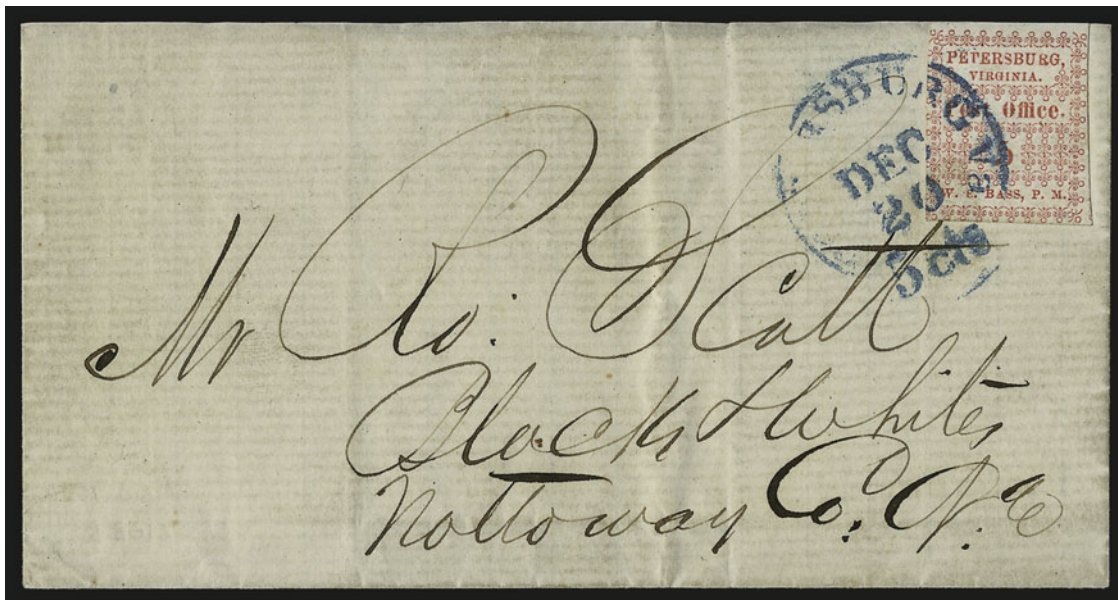 PETERSBURG,
VIRGINIA.
Office.
BASS, P. M.
SBURG Va
DEC
20
5cts
Mr Ro. Scott
Blacks & Whites
Nottoway Co.